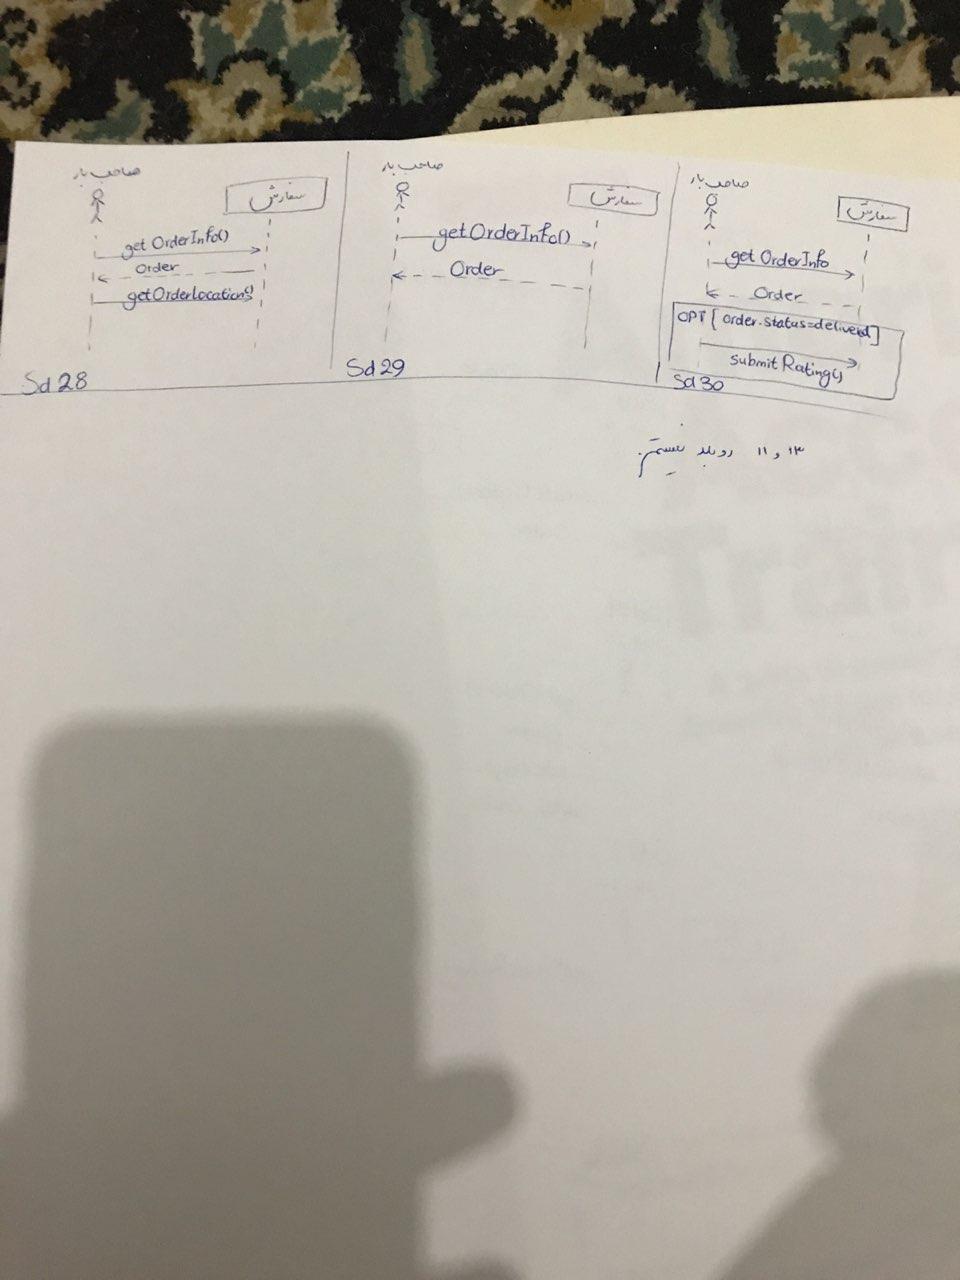 صاحب بار
سفارش
get OrderInfo()
Order
getOrderLocation()
Sd 28
صاحب بار
سفارش
get OrderInfo()
Order
Sd 29
صاحب بار
سفارش
get OrderInfo
Order
OPT [ order.status=deliverd]
submit Rating()
Sd 30
۱۳ و ۱۱ رو بلد نیستم.